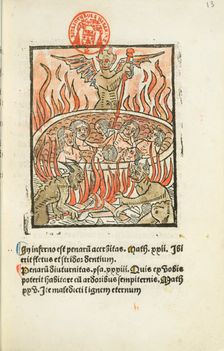 13
In inferno est penarũ acerbitas. Math. xxii. Ibi
erit fletus et stridor dentium.
Penarũ diuturnitas. ysa. xxxiii. Quis ex vobis
poterit habitare cũ ardoribus sempiternis. Math
xxv. Ite maledicti ī ignem eternum